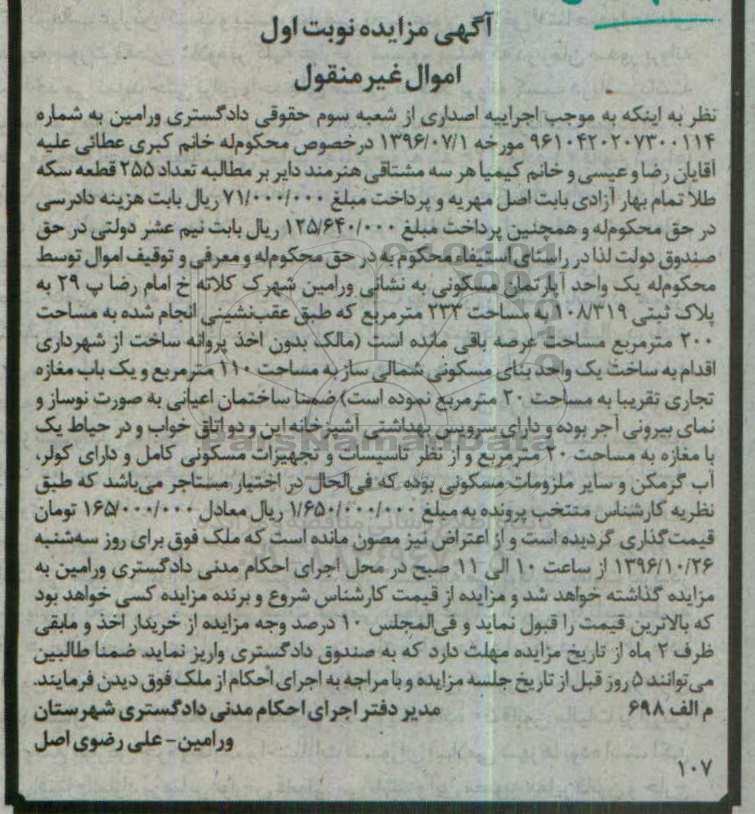 آگهی مزایده نوبت اول
اموال غیر منقول
نظر به اینکه به موجب اجراییه اصداری از شعبه سوم حقوقی دادگستری ورامین به شماره
۹۶۱۰۴۲۰۲۰۷۳۰۰۱۱۴ مورخه ۱۳۹۶/۰۷/۱ درخصوص محکوم‌له خانم کبری عطائی علیه
آقایان رضا و عیسی و خانم کیمیا هر سه مشتاقی هنرمند دایر بر مطالبه تعداد ۲۵۵ قطعه سکه
طلا تمام بهار آزادی بابت اصل مهریه و پرداخت مبلغ ۷۱/۰۰۰/۰۰۰ ریال بابت هزینه دادرسی
در حق محکوم‌له و همچنین پرداخت مبلغ ۱۲۵/۶۴۰/۰۰۰ ریال بابت نیم عشر دولتی در حق
صندوق دولت لذا در راستای استیفاء محکوم به در حق محکوم‌له و معرفی و توقیف اموال توسط
محکوم‌له یک واحد آپارتمان مسکونی به نشانی ورامین شهرک کلاته خ امام رضا پ ۲۹ به
پلاک ثبتی ۱۰۸/۳۱۹ به مساحت ۲۳۳ مترمربع که طبق عقب‌نشینی انجام شده به مساحت
۲۰۰ مترمربع مساحت عرصه باقی مانده است (مالک بدون اخذ پروانه ساخت از شهرداری
اقدام به ساخت یک واحد بنای مسکونی شمالی ساز به مساحت ۱۱۰ مترمربع و یک باب مغازه
تجاری تقریبا به مساحت ۲۰ مترمربع نموده است) ضمنا ساختمان اعیانی به صورت نوساز و
نمای بیرونی آجر بوده و دارای سرویس بهداشتی آشپزخانه اپن و دو اتاق خواب و در حیاط یک
با مغازه به مساحت ۲۰ مترمربع و از نظر تاسیسات و تجهیزات مسکونی کامل و دارای کولر،
آب گرمکن و سایر ملزومات مسکونی بوده که فی‌الحال در اختیار مستاجر می‌باشد که طبق
نظریه کارشناس منتخب پرونده به مبلغ ۱/۶۵۰/۰۰۰/۰۰۰ ریال معادل ۱۶۵/۰۰۰/۰۰۰ تومان
قیمت‌گذاری گردیده است و از اعتراض نیز مصون مانده است که ملک فوق برای روز سه‌شنبه
۱۳۹۶/۱۰/۲۶ از ساعت ۱۰ الی ۱۱ صبح در محل اجرای احکام مدنی دادگستری ورامین به
مزایده گذاشته خواهد شد و مزایده از قیمت کارشناس شروع و برنده مزایده کسی خواهد بود
که بالاترین قیمت را قبول نماید و فی‌المجلس ۱۰ درصد وجه مزایده از خریدار اخذ و مابقی
ظرف ۲ ماه از تاریخ مزایده مهلت دارد که به صندوق دادگستری واریز نماید. ضمنا طالبین
می‌توانند ۵ روز قبل از تاریخ جلسه مزایده و با مراجه به اجرای احکام از ملک فوق دیدن فرمایند.
م الف ۶۹۸ مدیر دفتر اجرای احکام مدنی دادگستری شهرستان
ورامین- علی رضوی اصل
۱۰۷